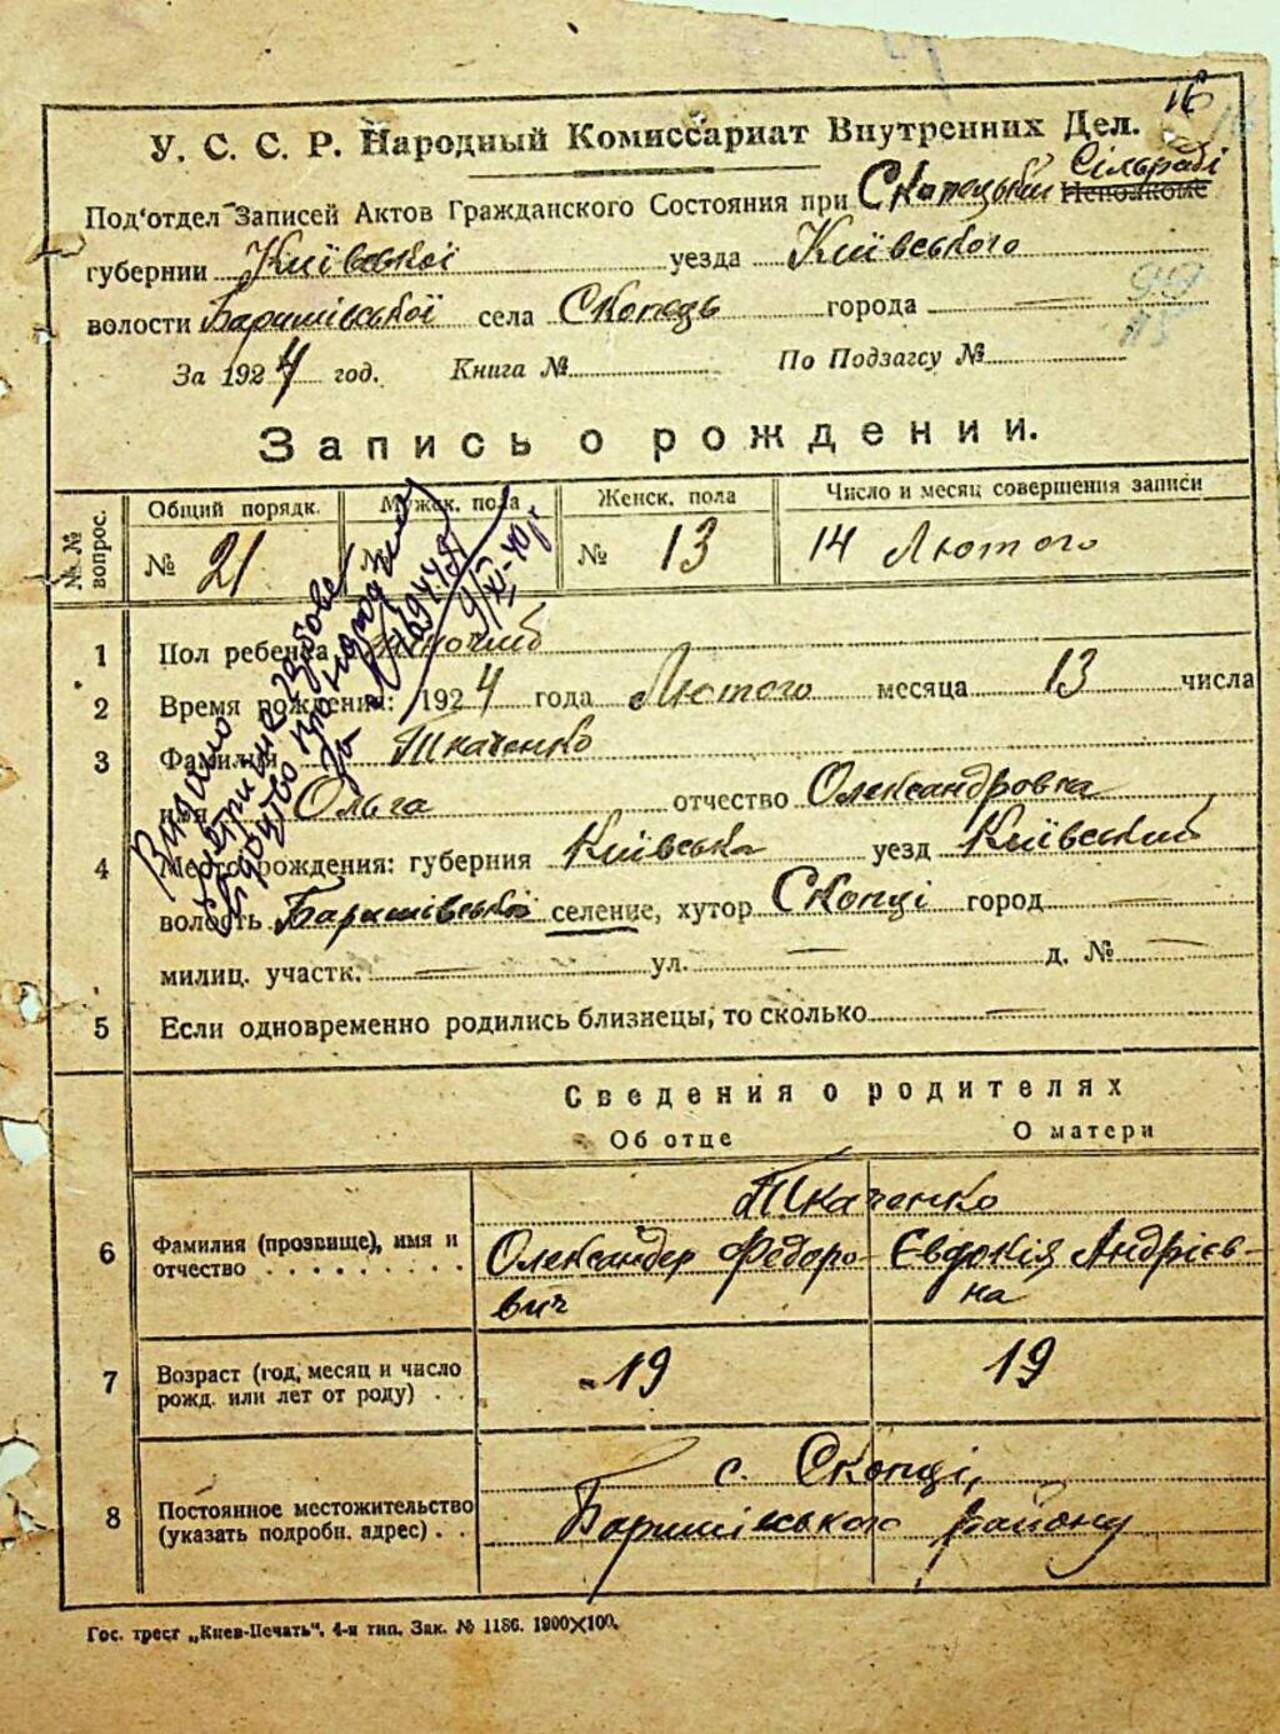 16
У. С. С. Р. Народный Комиссариат Внутренних Дел.
Сільраді
Под'отдел Записей Актов Гражданского Состояния при Скопецькій Исполкоме
губернии Київської уезда Київського
волости Баришівської села Скопець города —
99
115
За 1924 год. Книга № По Подзагсу №
Запись о рождении.
№№ вопрос. Общий порядк. Мужск. пола Женск. пола Число и месяц совершения записи
№ 21 № № 13 14 Лютого
1 Пол ребенка жіночий
2 Время рождения: 1924 года Лютого месяца 13 числа
3 Фамилия Ткаченко
имя Ольга отчество Олександровна
4 Место рождения: губерния Київська уезд Київський
волость Баришівської селение, хутор Скопці город —
милиц. участк. — ул. — д. № —
5 Если одновременно родились близнецы, то сколько —
Видано
свідоцтво про народження
9/XI-40р
Сведения о родителях
Об отце О матери
Ткаченко
6 Фамилия (прозвище), имя и отчество . . . . . . . . . Олександер Федоро- Євдокія Андрієв-
вич на
7 Возраст (год, месяц и число рожд. или лет от роду) . . 19 19
с. Скопці,
8 Постоянное местожительство (указать подробн. адрес) . . Баришівського району
Гос. трест „Киев-Печать“, 4-я тип. Зак. № 1186. 1900×100.